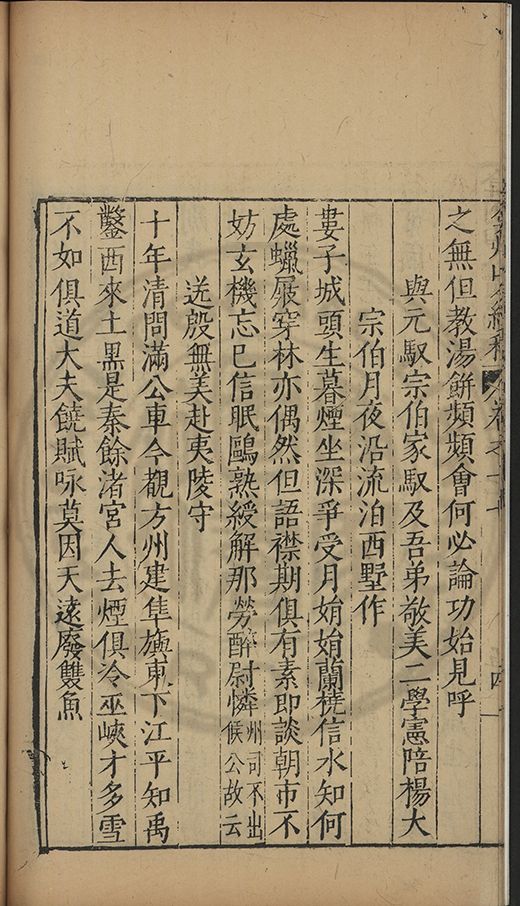 之無但教湯餅頻頻會何必論功始見呼
與元馭宗伯家馭及吾弟敬美二學憲陪楊大
宗伯月夜沿流泊西墅作
婁子城頭生暮煙坐深爭受月娟娟蘭橈信水知何
處蠟屐穿林亦偶然但語襟期俱有素即談朝市不
妨玄機忘已信眠鷗熟綬解那勞醉尉憐州司不出候公故云
送殷無美赴夷陵守
十年清問滿公車今觀方州建隼旟東下江平知禹
鑿西來土黑是秦餘渚宮人去煙俱冷巫峽才多雪
不如俱道大夫饒賦咏莫因天遠廢雙魚